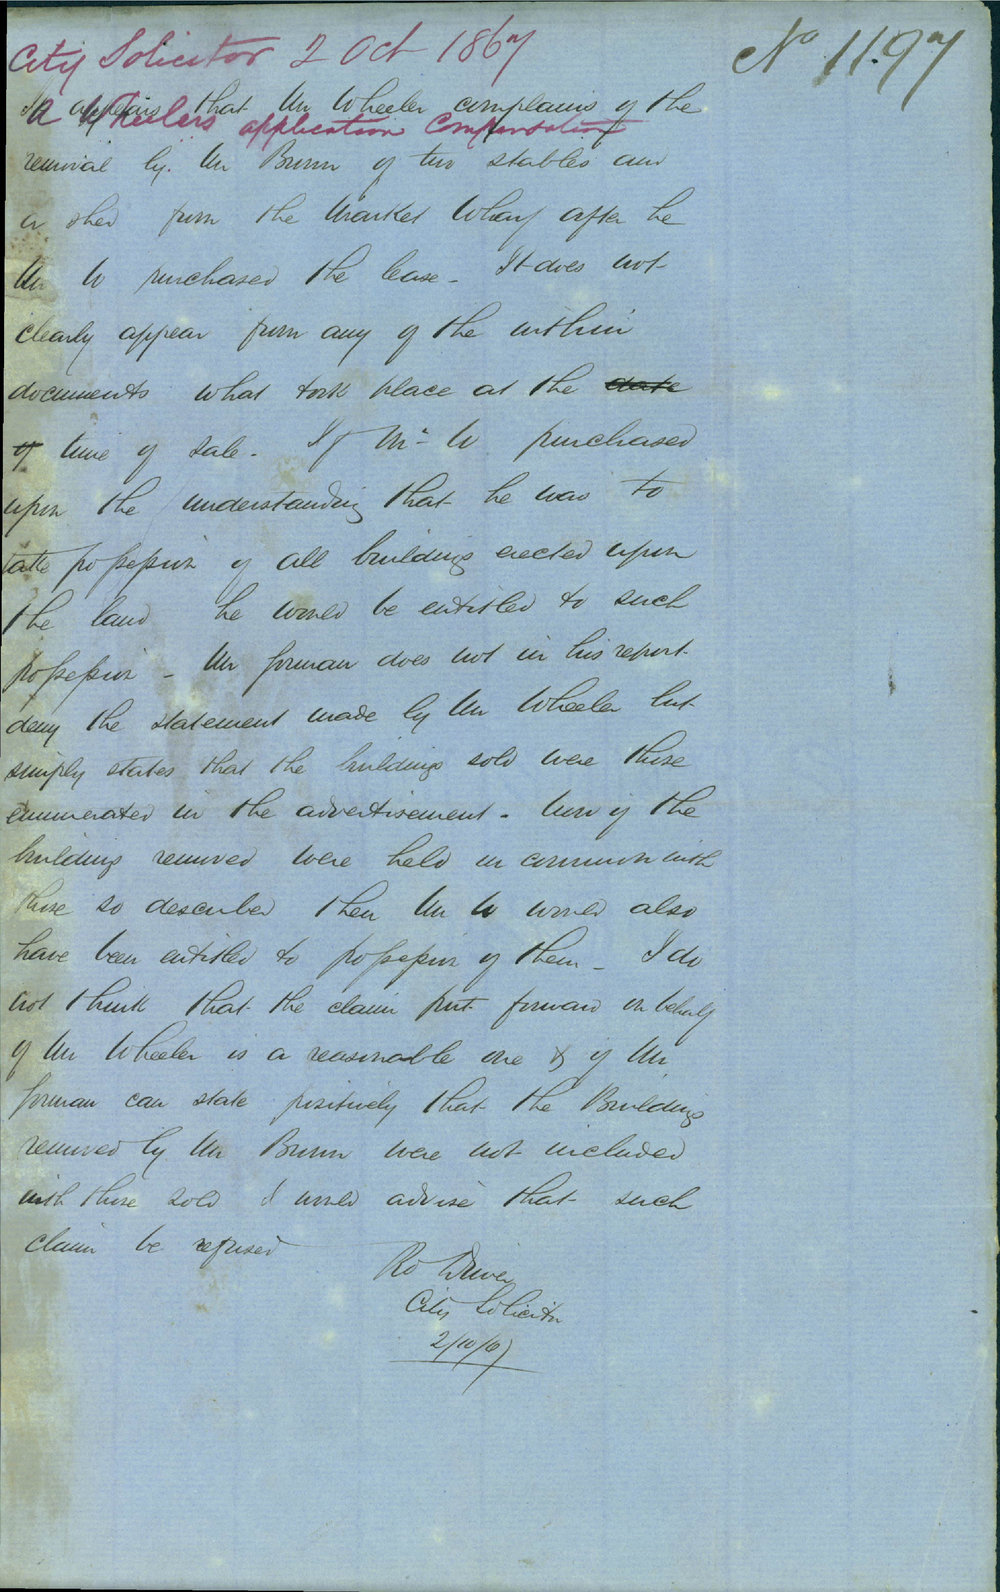 City Solicitor 2 Oct 1867
No 11.97
It appears that Mr Wheeler complains of the
A Wheelers application Compensation
removal by Mr Bunn of two stables and
a shed from the Market Wharf after he
Mr W purchased the lease - It does not
clearly appear from any of the within
documents what took place at the date
of time of sale - If Mr W purchased
upon the understanding that he was to
take possession of all buildings erected upon
the land he would be entitled to such
possession - Mr Jorman does not in his report
deny the statement made by Mr Wheeler but
simply states that the buildings sold were those
enumerated in the advertisement - Now if the
buildings removed were held in common with
those so described then Mr W would also
have been entitled to possession of them - I do
not think that the claim put forward on behalf
of Mr Wheeler is a reasonable one & if Mr
Jorman can state positively that the Buildings
removed by Mr Bunn were not included
with those sold I would advise that such
claim be refused
Ro Driver
City Solicitor
2/10/67